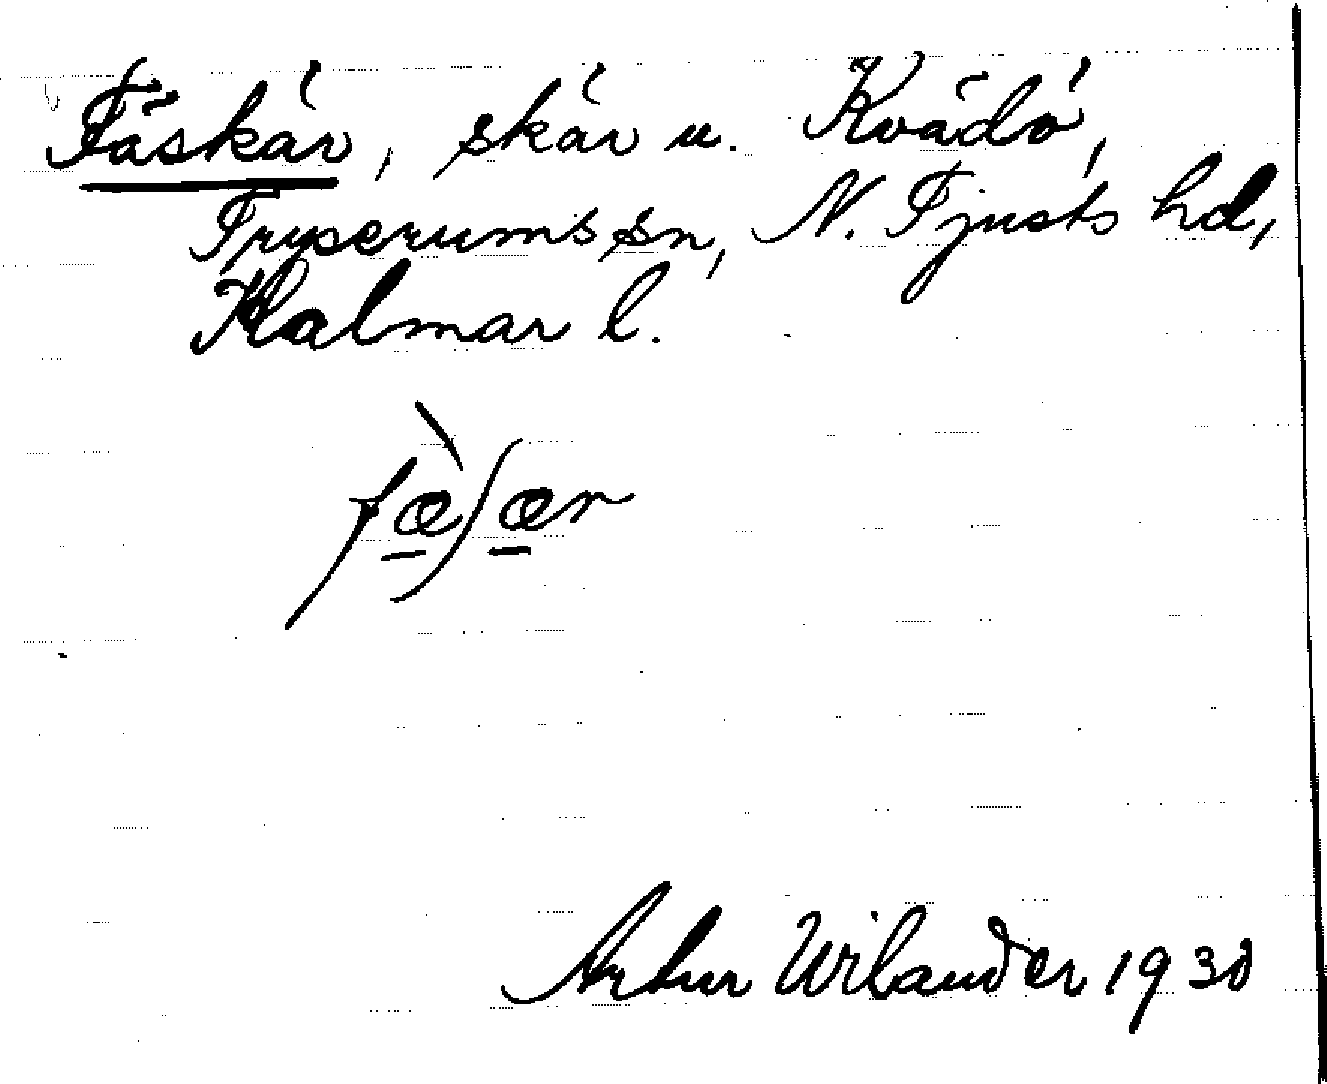 Fäskär, skär u. Kvädö,
Tryserums sn, N. Tjusts hd,
Kalmar l.
Artur Wilander 1930